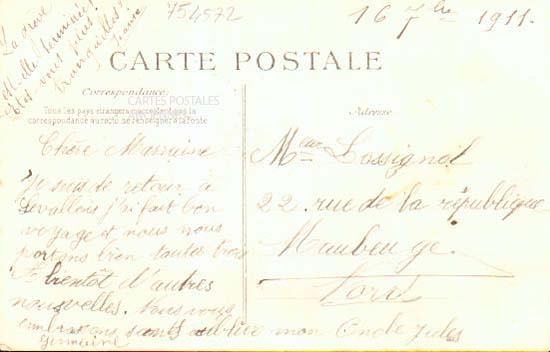 754572
16 7bre 1911.
La grève
est-elle terminée?
Etes-vous plus
tranquilles?
CARTE POSTALE
Correspondance
CARTES POSTALES
Tous les pays étrangers n'acceptent pas la
correspondance au recto, se renseigner à la Poste
Adresse
Chère Marraine
Je suis de retour à
Levallois j'ai fait bon
voyage et nous nous
portons bien toutes trois
A bientôt d'autres
nouvelles. Nous vous
embrassons sans oublier mon Oncle Jules
Germaine
Mme Lossignol
22 rue de la république
Maubeuge.
Nord